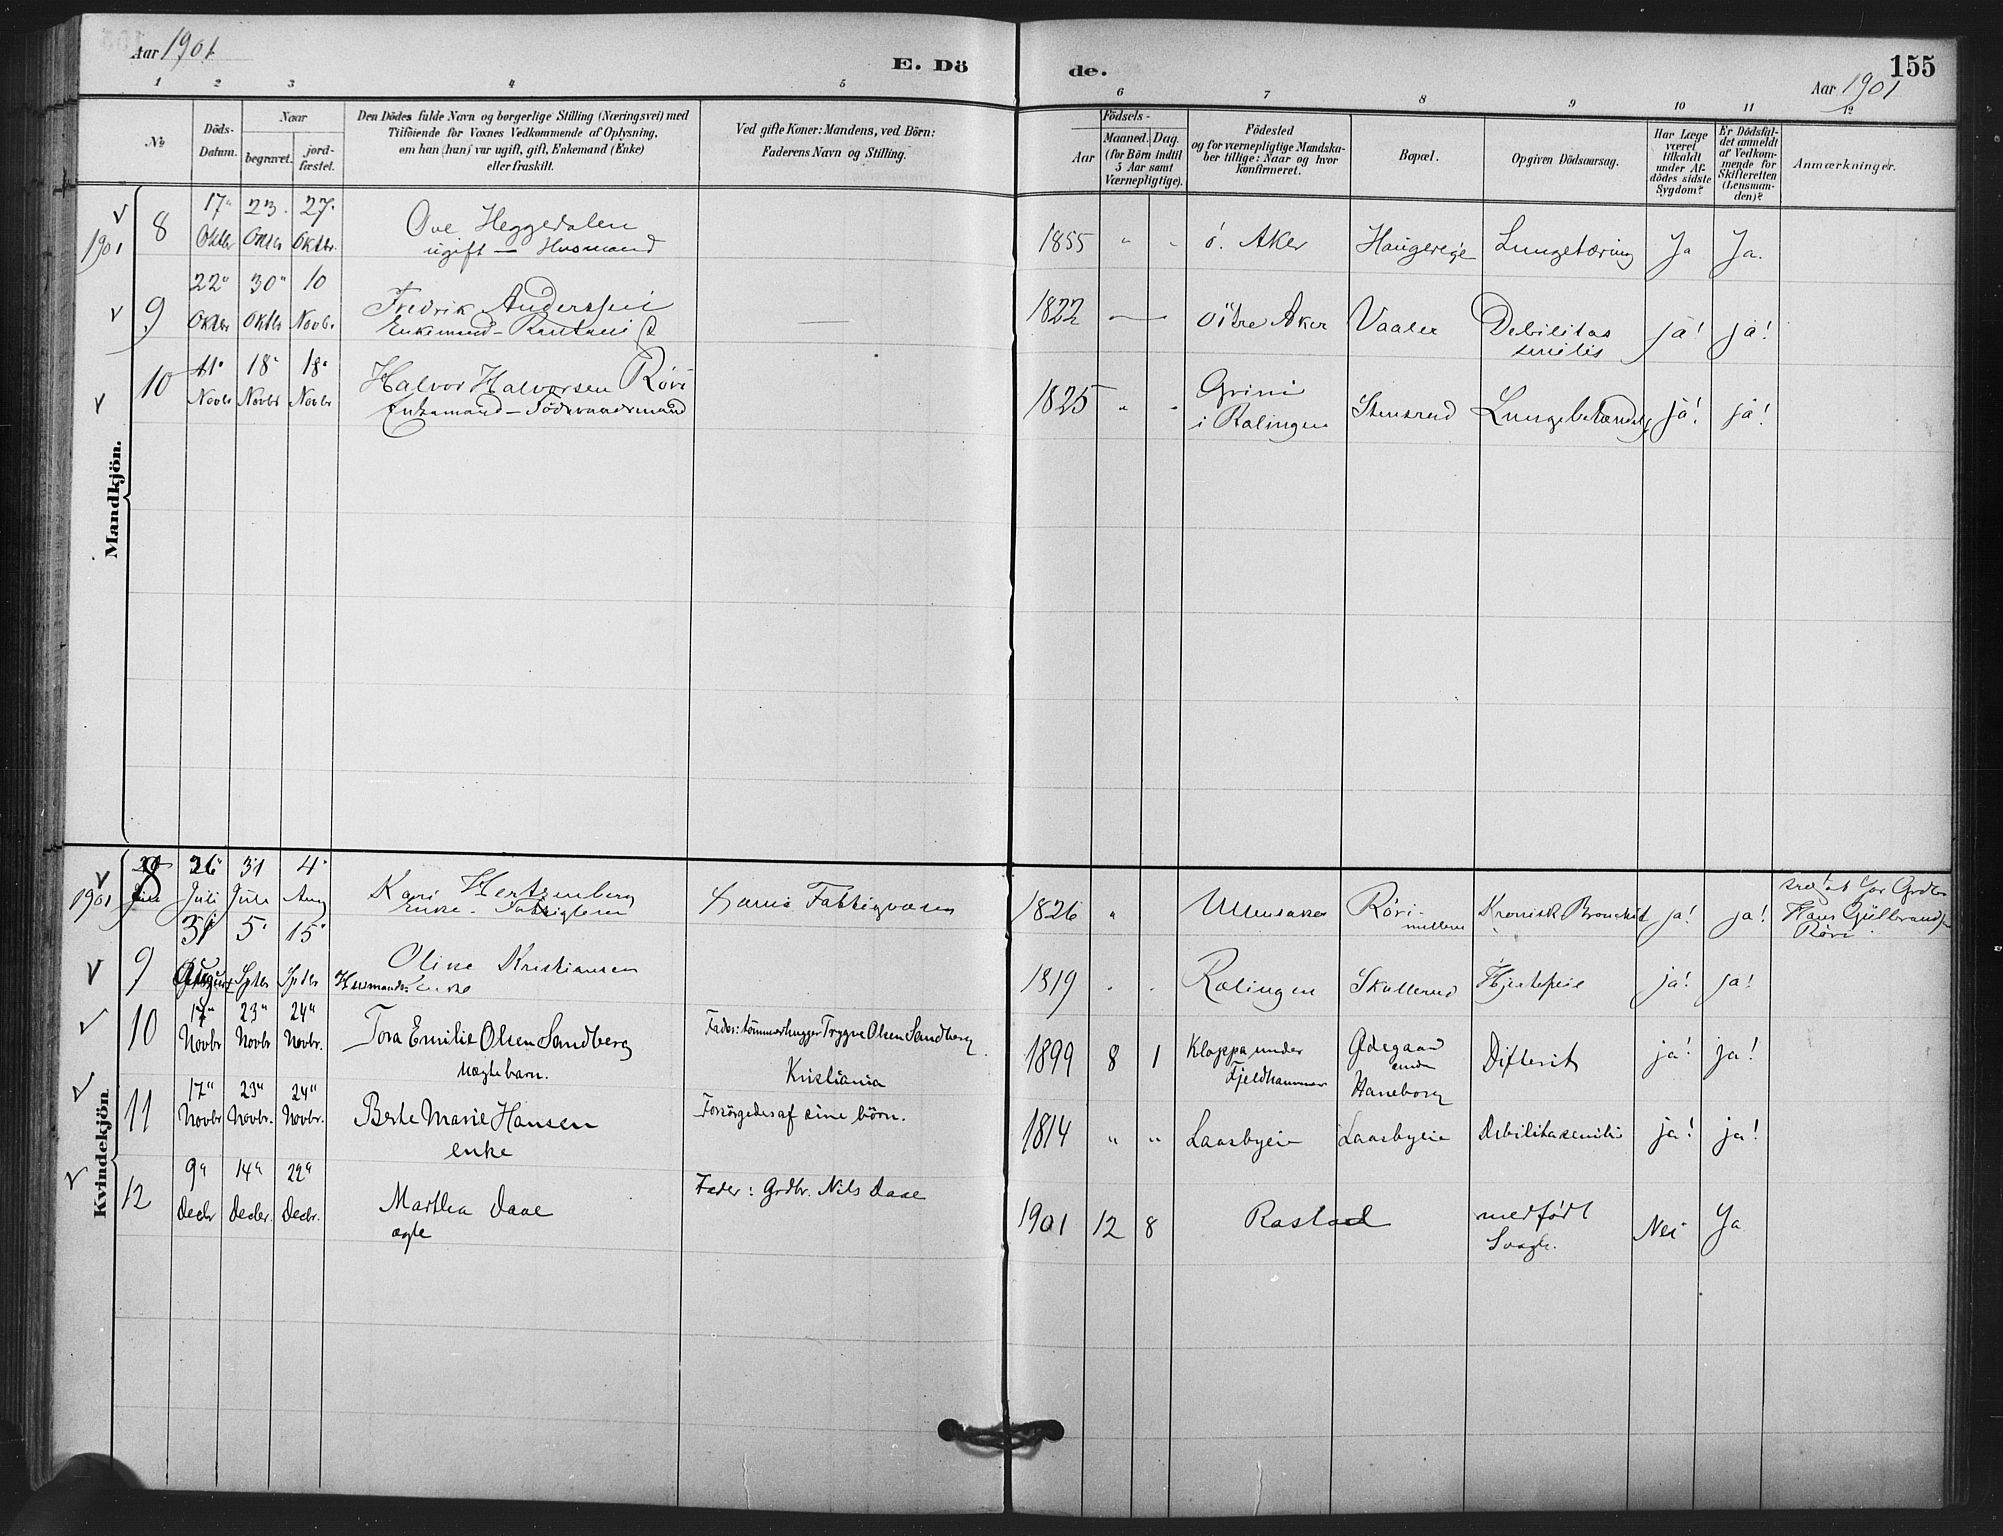 Aar 1901
E. Dö
de.
155
Aar 1901
1 2 3 4 5 6 7 8 9 10 11 12
No
Döds-
Datum.
Naar
begravet.
jord-
fæstet.
Den Dödes fulde Navn og borgerlige Stilling (Næringsvei) med
Tilföiende for Voxnes Vedkommende af Oplysning,
om han (hun) var ugift, gift, Enkemand (Enke)
eller fraskilt.
Ved gifte Koner: Mandens, ved Börn:
Faderens Navn og Stilling.
Födsels-
Aar
Maaned. Dag.
(for Börn indtil
5 Aar samt
Værnepligtige).
Födested
og for værnepligtige Mandska-
ber tillige: Naar og hvor
konfirmeret.
Bopæl.
Opgiven Dödsaarsag.
Har Læge
været
tilkaldt
under Af-
dödes sidste
Sygdom?
Er Dödsfal-
det anmeldt
af Vedkom-
mende for
Skifteretten
(Lensman-
den)?
Anmærkninger.
Mandkjön.
1901
8 17 Oktbr 23 Oktbr 27 Oktbr. Ove Heggedalen
ugift — Husmand
1855 " " ö. Aker Haugerige Lungetæring Ja Ja.
9 22 Oktbr 30 Oktbr 10 Novbr Fredrik Anderssen
Enkemand —
1822 Östre Aker Vaaler Debilitas
senilis ja! ja!
10 11 Novbr 18 Novbr 18 Novbr Halvor Halvorsen Röri
Enkemand — Föderaadsmand
1825 " " Grini
i Rælingen Stensrud Lungebetændelse ja! ja!
Kvindekjön.
1901
8 26 Juli 31 Juli 4 Aug Kari Hertzenberg
Enke - Fattiglem
Fattigvæsen
1826 " Ullensaker Röri-
Kronisk Bronchit ja! ja!
Hans Gulbrandsen
Röri.
9 31 August 5 Sptbr 15 Sptbr Oline Kristiansen
Husmands Enke
1819 " " Rælingen Skullerud Hjertefeil ja! ja!
10 17" Novbr 23" Novbr 24" Novbr. Tora Emilie Olsen Sandberg
uægte barn.
Fader: tömmerhugger Trygve Olsen Sandberg
Kristiania
1899 8 1 Kloppa under
Fjeldhammer Ödegaard
under
Haneborg Difterit ja! ja!
11 17" Novbr 23" Novbr. 24" Novbr. Berte Marie Hansen
enke
Forsörgedes af sine börn.
1814 " " Laasbyeie Laasbyeie Debilitas senilis ja! ja!
12 9" Decbr 14" Decbr. 22" Decbr. Martha Daae
ægte
Fader: Grdbr. Nils Daae
1901 12 8 Rastad medfödt
Svagh. Nei Ja